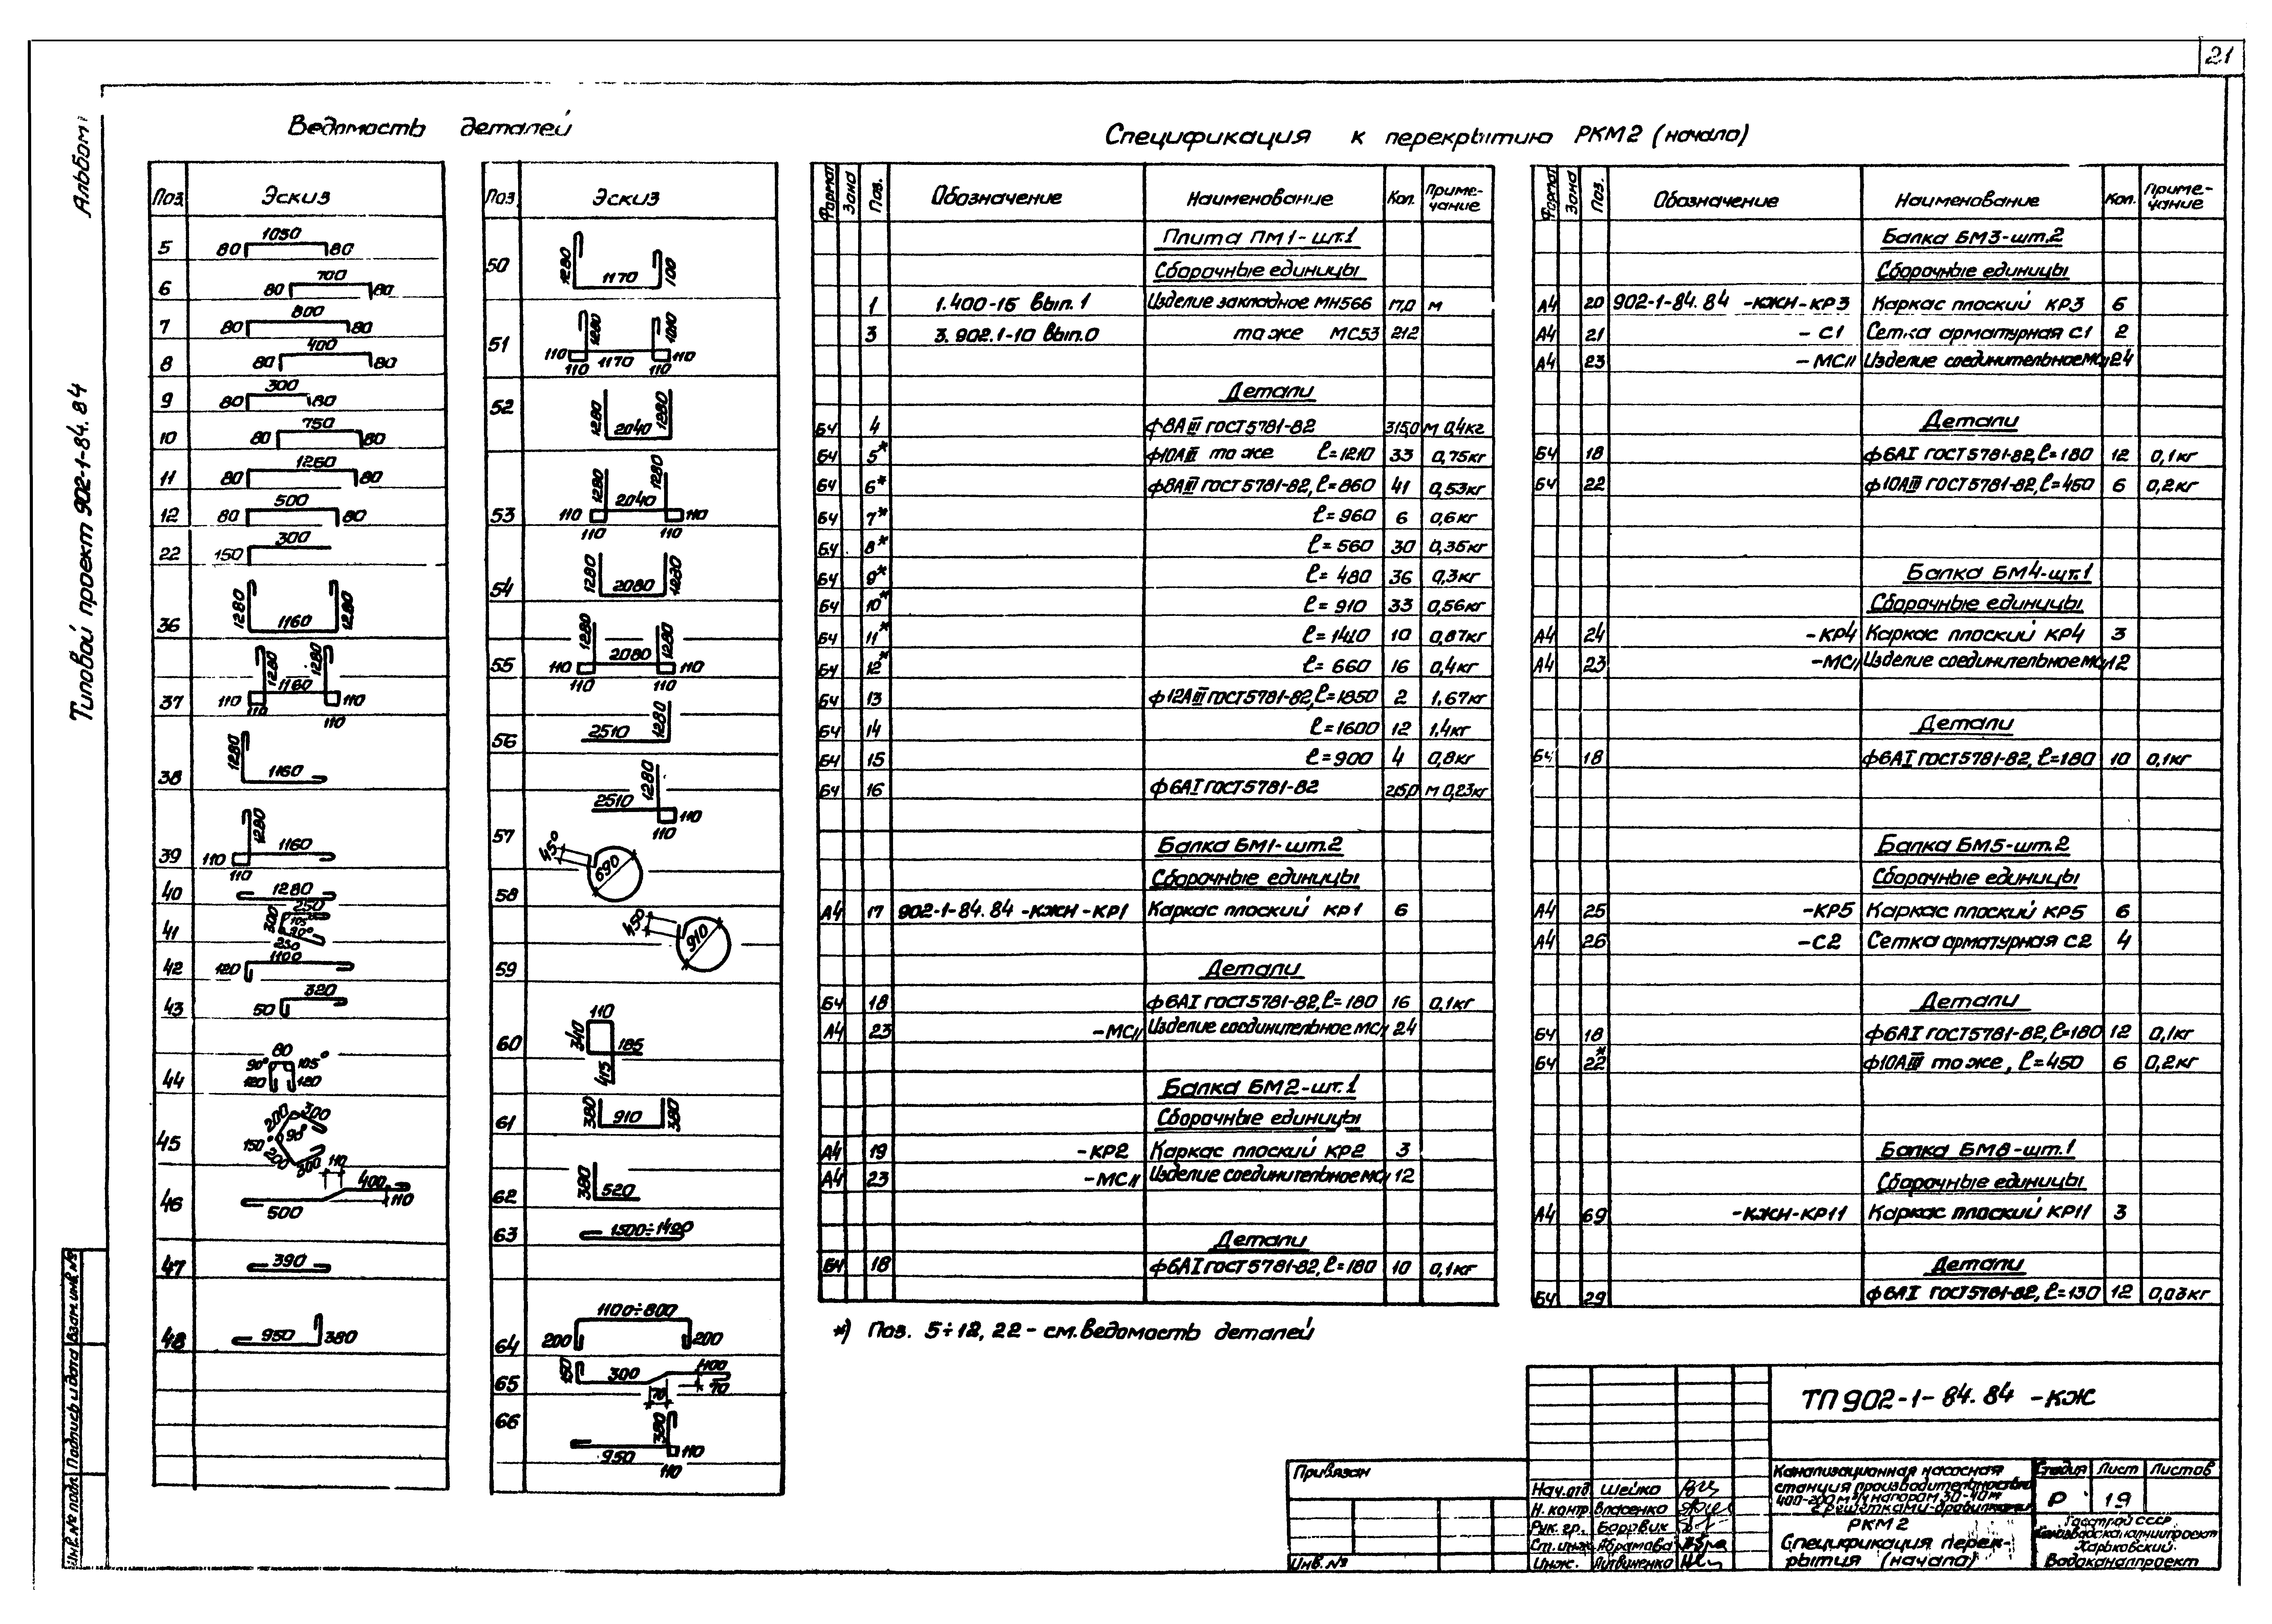 21
Альбом I
Типовой проект 902-1-84.84
Ведомость деталей
Поз. Эскиз
5 80 1050 80
6 80 700 80
7 80 800 80
8 80 400 80
9 80 300 80
10 80 750 80
11 80 1260 80
12 80 500 80
22 150 300
36 1280 1160 1280
37 1280 1280 1160 110 110 110 110
38 1280 1160
39 1280 1160 110 110
40 1280
41 300 250 105° 90° 250
42 120 1100
43 50 320
44 80 90° 105° 120 120
45 200 300 150° 90° 200 300
46 110 400 110 500
47 390
48 950 380
Поз. Эскиз
50 1280 1170 100
51 1280 1010 110 1170 110 110 110
52 1280 2040 1280
53 1280 2040 1280 110 110 110 110
54 1280 2080 1280
55 1280 2080 1280 110 110 110 110
56 2510 1280
57 2510 1280 110 110
58 45° 690
59 45° 910
60 110 340 185 415
61 380 910 380
62 380 520
63 1500÷1420
64 1100÷800 200 200
65 150 300 400 70 70
66 380 950 110 110
Спецификация к перекрытию РКМ2 (начало)
Формат Зона Поз. Обозначение Наименование Кол. Примечание
Плита ПМ1-шт.1
Сборочные единицы
1 1.400-15 вып.1 Изделие закладное МН566 17,0 м
3 3.902.1-10 вып.0 то же МС53 212
Детали
БЧ 4 ф8АIII ГОСТ5781-82 315,0 м 0,4кг
БЧ 5* ф10АIII то же ℓ=1210 33 0,75кг
БЧ 6* ф8АIII ГОСТ5781-82, ℓ=860 41 0,53кг
БЧ 7* ℓ=960 6 0,6кг
БЧ 8* ℓ=560 30 0,35кг
БЧ 9* ℓ=480 36 0,3кг
БЧ 10* ℓ=910 33 0,56кг
БЧ 11* ℓ=1410 10 0,87кг
БЧ 12* ℓ=660 16 0,4кг
БЧ 13 ф12АIII ГОСТ5781-82, ℓ=1850 2 1,67кг
БЧ 14 ℓ=1600 12 1,4кг
БЧ 15 ℓ=900 4 0,8кг
БЧ 16 ф6АI ГОСТ5781-82 215,0 м 0,23кг
Балка БМ1-шт.2
Сборочные единицы
А4 17 902-1-84.84 -КЖН-КР1 Каркас плоский КР1 6
Детали
БЧ 18 ф6АI ГОСТ5781-82, ℓ=180 16 0,1кг
А4 23 -МС11 Изделие соединительное МС11 24
Балка БМ2-шт.1
Сборочные единицы
А4 19 -КР2 Каркас плоский КР2 3
А4 23 -МС11 Изделие соединительное МС11 12
Детали
БЧ 18 ф6АI ГОСТ5781-82, ℓ=180 10 0,1кг
*) Поз. 5÷12, 22 - см. ведомость деталей
Формат Зона Поз. Обозначение Наименование Кол. Примечание
Балка БМ3-шт.2
Сборочные единицы
А4 20 902-1-84.84 -КЖН-КР3 Каркас плоский КР3 6
А4 21 -С1 Сетка арматурная С1 2
А4 23 -МС11 Изделие соединительное МС11 24
Детали
БЧ 18 ф6АI ГОСТ5781-82, ℓ=180 12 0,1кг
БЧ 22 ф10АIII ГОСТ5781-82, ℓ=450 6 0,2кг
Балка БМ4-шт.1
Сборочные единицы
А4 24 -КР4 Каркас плоский КР4 3
А4 23 -МС11 Изделие соединительное МС11 12
Детали
БЧ 18 ф6АI ГОСТ5781-82, ℓ=180 10 0,1кг
Балка БМ5-шт.2
Сборочные единицы
А4 25 -КР5 Каркас плоский КР5 6
А4 26 -С2 Сетка арматурная С2 4
Детали
БЧ 18 ф6АI ГОСТ5781-82, ℓ=180 12 0,1кг
БЧ 22* ф10АIII то же, ℓ=450 6 0,2кг
Балка БМ8-шт.1
Сборочные единицы
А4 69 -КЖН-КР11 Каркас плоский КР11 3
Детали
БЧ 29 ф6АI ГОСТ5781-82, ℓ=130 12 0,03кг
ТП 902-1-84.84 -КЖ
Привязан
Инв.№
Нач.отд. Шейко
Н.контр. Власенко
Рук.гр. Боровик
Ст.инж. Абрамова
Инж. Литвиненко
Канализационная насосная
станция производительностью
400-200 м³/ч напором 30-40м
с решетками-дробилками
Стадия Лист Листов
Р 19
РКМ2
Спецификация перекрытия (начало)
Госстрой СССР
Союзводоканалниипроект
Харьковский
Водоканалпроект
Инв.№ подл. Подпись и дата Взам.инв.№